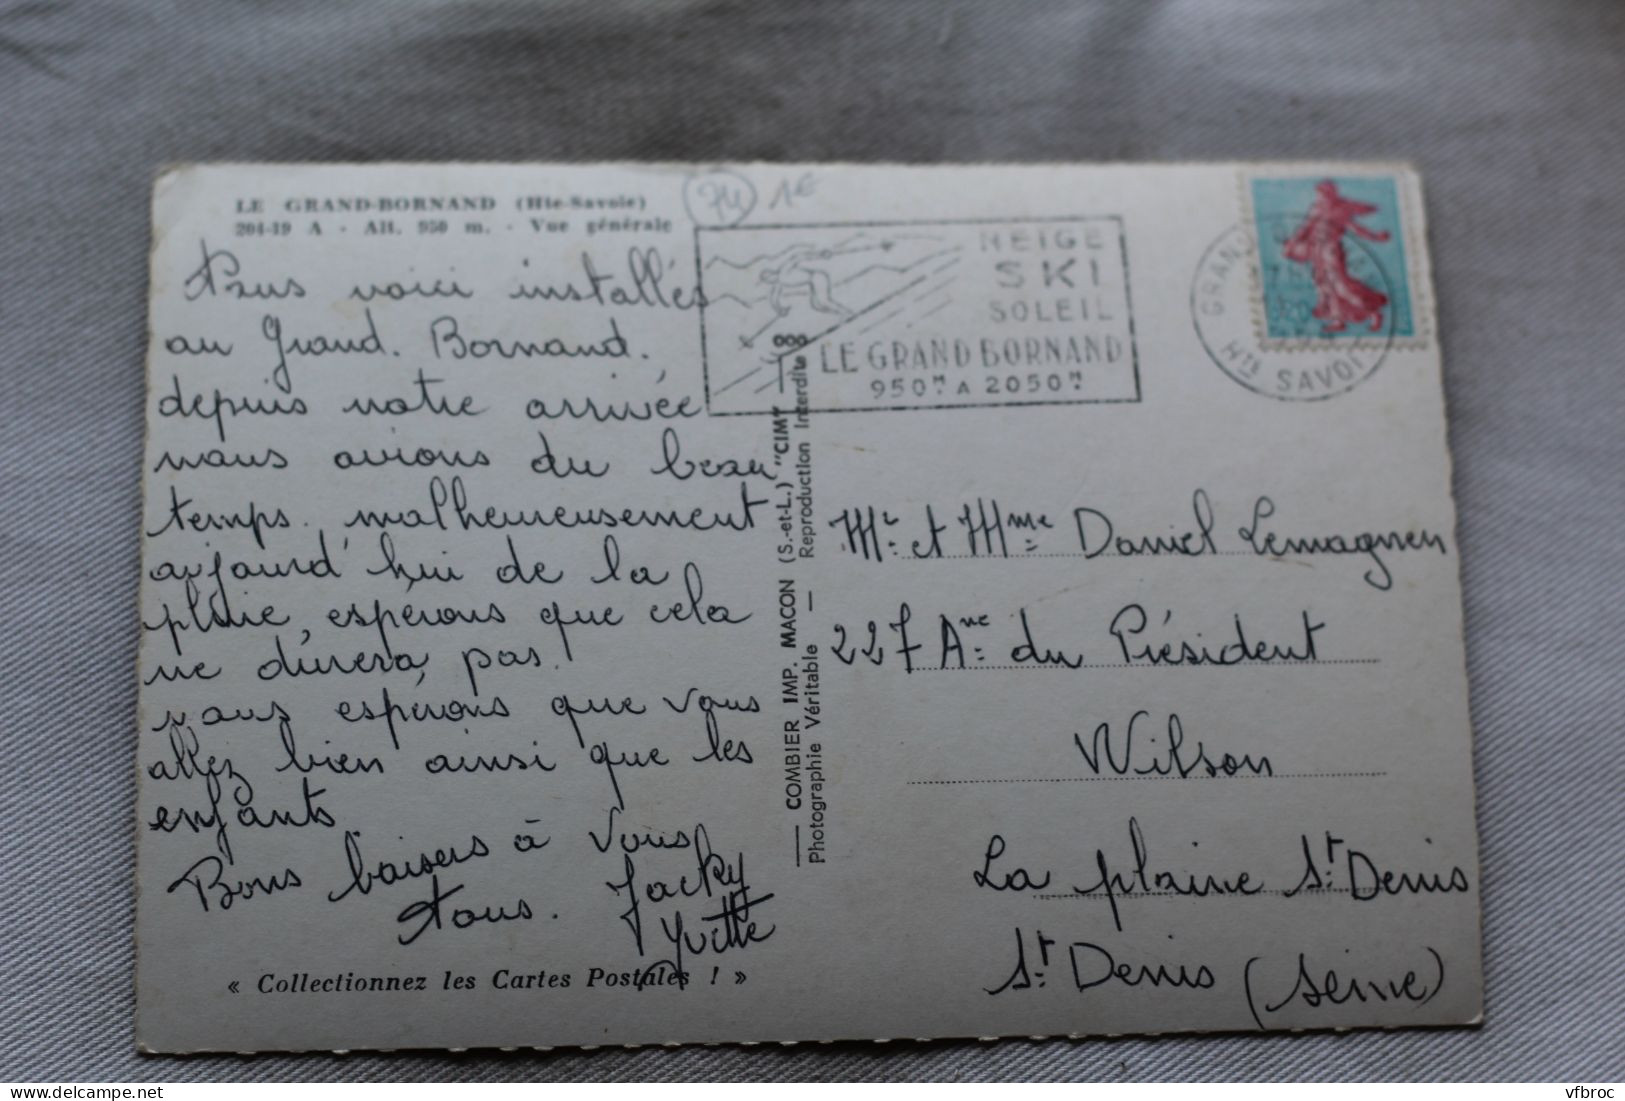 LE GRAND-BORNAND (Hte-Savoie)
204-19 A - Alt. 950 m. - Vue générale
74 1€
Nous voici installés
au Grand. Bornand.
depuis notre arrivée
nous avions du beau
temps. malheureusement
aujourd'hui de la
pluie, espérons que cela
ne durera pas.
nous espérons que vous
allez bien ainsi que les
enfants.
Bons baisers à vous
tous. Jacky
Yvette
« Collectionnez les Cartes Postales ! »
COMBIER IMP. MACON (S.-et-L.) "CIM"
Photographie Véritable — Reproduction Interdite
NEIGE
SKI
SOLEIL
LE GRAND BORNAND
950M A 2050M
GRAND
HTE SAVOIE
Mr. et Mme Daniel Lemagnen
227 Ave du Président
Wilson
La plaine St. Denis
St. Denis (Seine)
vfbroc